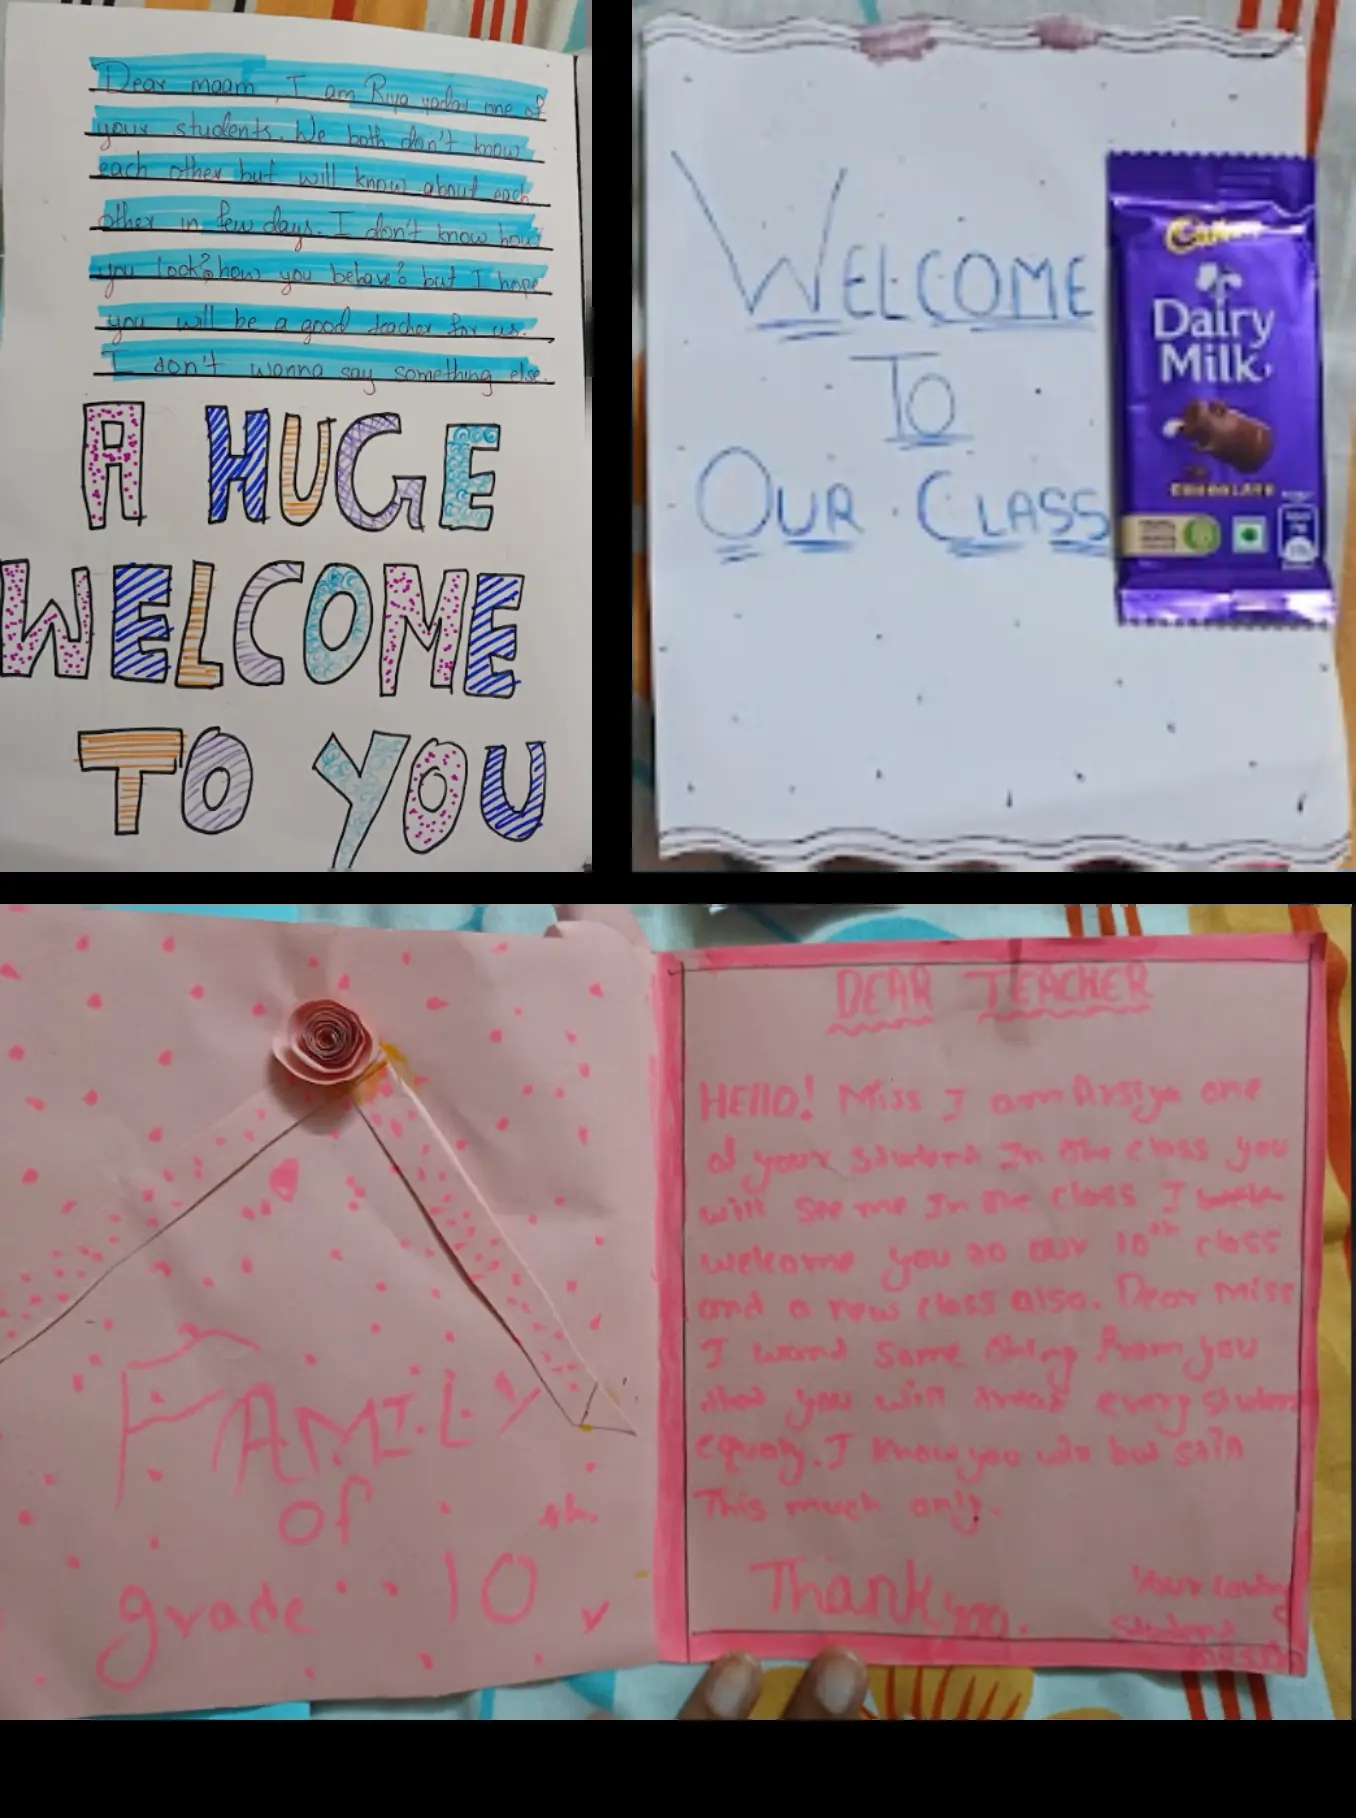 Dear maam, I am Riya yadav one of
your students. We both don't know
each other but will know about each
other in few days. I don't know how
you look? how you behave? but I hope
you will be a good teacher for us.
I don't wanna say something else.
A HUGE
WELCOME
TO YOU
WELCOME
TO
OUR CLASS
Cadbury
Dairy
Milk
CHOCOLATE
FAMILY
of
grade 10
DEAR TEACHER
HEllO! Miss I am Arsiya one
of your student In the class you
will see me In the class I
welcome you to our 10th class
and a new class also. Dear miss
I want some thing from you
that you will treat every student
equaly. I know you will but still
This much only.
Thank you.
Your loving
student